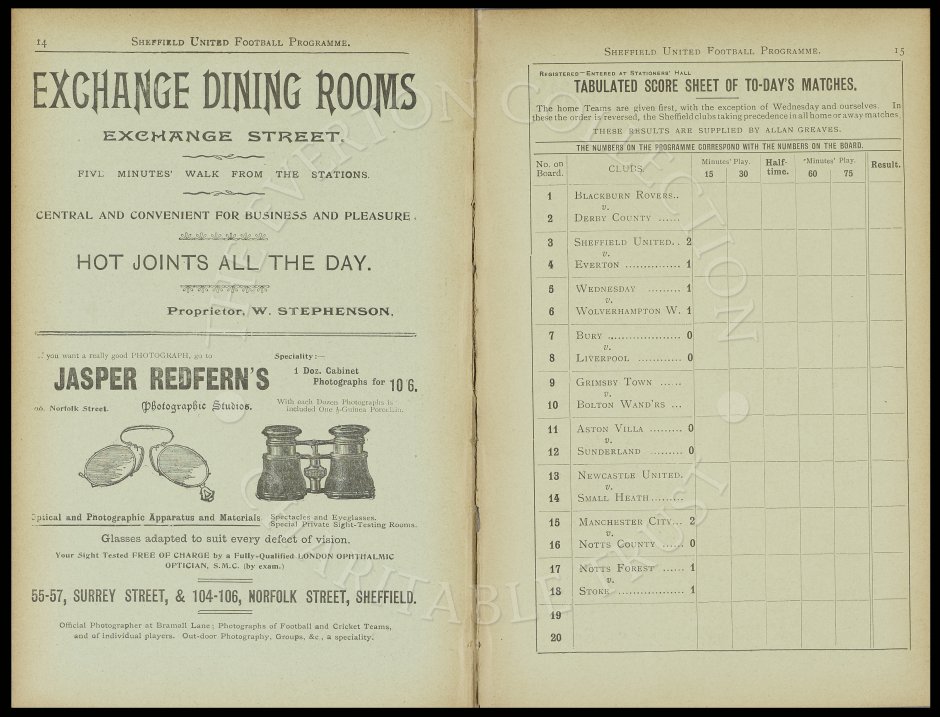 14 SHEFFIELD UNITED FOOTBALL PROGRAMME.
EXCHANGE DINING ROOMS
EXCHANGE STREET.
FIVE MINUTES' WALK FROM THE STATIONS.
CENTRAL AND CONVENIENT FOR BUSINESS AND PLEASURE.
HOT JOINTS ALL THE DAY.
Proprietor, W. STEPHENSON.
you want a really good PHOTOGRAPH, go to
JASPER REDFERN'S
Norfolk Street. Photographic Studios.
Speciality:—
1 Doz. Cabinet
Photographs for 10/6.
With each Dozen Photographs is
included One ½-Guinea Porcelain.
Optical and Photographic Apparatus and Materials
Spectacles and Eyeglasses.
Special Private Sight-Testing Rooms.
Glasses adapted to suit every defect of vision.
Your Sight Tested FREE OF CHARGE by a Fully-Qualified LONDON OPHTHALMIC
OPTICIAN, S.M.C. (by exam.)
55-57, SURREY STREET, & 104-106, NORFOLK STREET, SHEFFIELD.
Official Photographer at Bramall Lane; Photographs of Football and Cricket Teams,
and of individual players. Out-door Photography, Groups, &c., a speciality.
SHEFFIELD UNITED FOOTBALL PROGRAMME. 15
REGISTERED—ENTERED AT STATIONERS' HALL
TABULATED SCORE SHEET OF TO-DAY'S MATCHES.
The home Teams are given first, with the exception of Wednesday and ourselves. In
these the order is reversed, the Sheffield clubs taking precedence in all home or away matches
THESE RESULTS ARE SUPPLIED BY ALLAN GREAVES.
THE NUMBERS ON THE PROGRAMME CORRESPOND WITH THE NUMBERS ON THE BOARD.
No. on Board. CLUBS Minutes' Play. 15 30 Half-time. Minutes' Play. 60 75 Result.
1 BLACKBURN ROVERS..
v.
2 DERBY COUNTY ......
3 SHEFFIELD UNITED.. 2
v.
4 EVERTON ............... 1
5 WEDNESDAY ......... 1
v.
6 WOLVERHAMPTON W. 1
7 BURY .................... 0
v.
8 LIVERPOOL ............ 0
9 GRIMSBY TOWN ......
v.
10 BOLTON WAND'RS ...
11 ASTON VILLA ......... 0
v.
12 SUNDERLAND ......... 0
13 NEWCASTLE UNITED.
v.
14 SMALL HEATH.........
15 MANCHESTER CITY... 2
v.
16 NOTTS COUNTY ...... 0
17 NOTTS FOREST ...... 1
v.
18 STOKE .................. 1
19
20
THE EVERTON COLLECTION
CHARITABLE TRUST